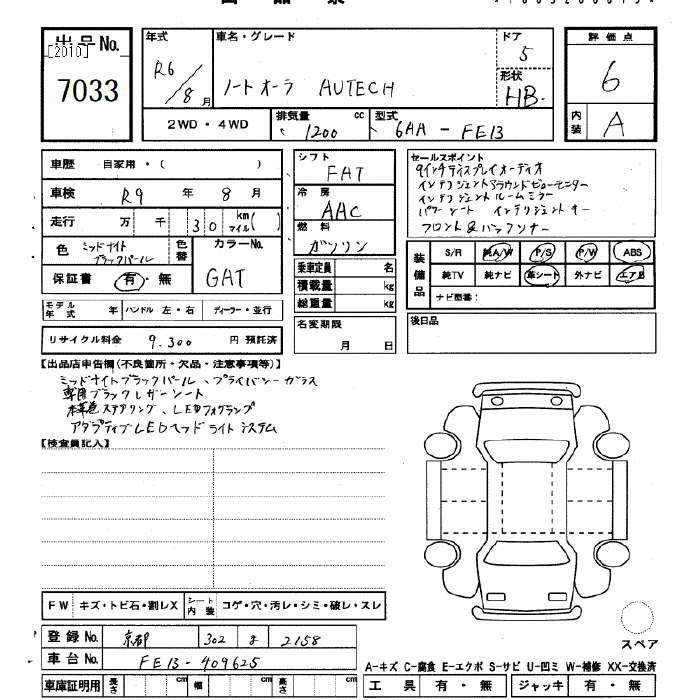 出品No.
[2010]
7033
年式
R6/8月
車名・グレード
ノートオーラ AUTECH
ドア
5
形状
HB.
評価点
6
内装
A
2WD・4WD
排気量 cc
1200
型式
6AA - FE13
車歴 自家用・( )
車検 R9 年 8 月
走行 万 千 30 km マイル ( )
色 ミッドナイトブラックパール
色替
カラーNo.
GAT
保証書 有・無
モデル年式 年 ハンドル 左・右 ディーラー・並行
リサイクル料金 9.300 円 預託済
シフト
FAT
冷房
AAC
燃料
ガソリン
乗車定員 名
積載量 kg
総重量 kg
名変期限
月 日
セールスポイント
9インチディスプレイオーディオ
インテリジェントアラウンドビューモニター
インテリジェント ルームミラー
パワーシート インテリジェント キー
フロント&バックソナー
装備品
S/R 純A/W P/S P/W ABS
純TV 純ナビ 革シート 外ナビ エアB
ナビ型番:
後日品
【出品店申告欄(不良箇所・欠品・注意事項等)】
ミッドナイトブラックパール、プライバシーガラス
専用ブラックレザーシート
本革巻ステアリング、LEDフォグランプ
アダプティブLEDヘッドライトシステム
【検査員記入】
FW キズ・トビ石・割レX シート内装 コゲ・穴・汚レ・シミ・破レ・スレ
登録No. 京都 302 ま 2158
車台No. FE13-409625
車庫証明用 長さ cm 幅 cm 高さ cm
スペア
A-キズ C-腐食 E-エクボ S-サビ U-凹ミ W-補修 XX-交換済
工具 有・無 ジャッキ 有・無